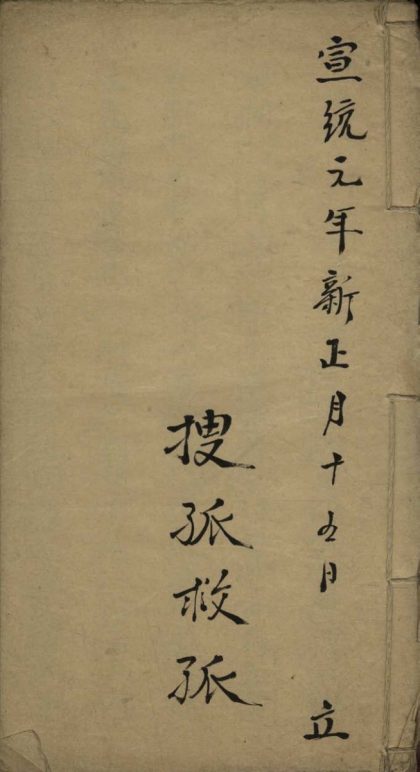 宣統元年新正月十五日 立
搜孤救孤